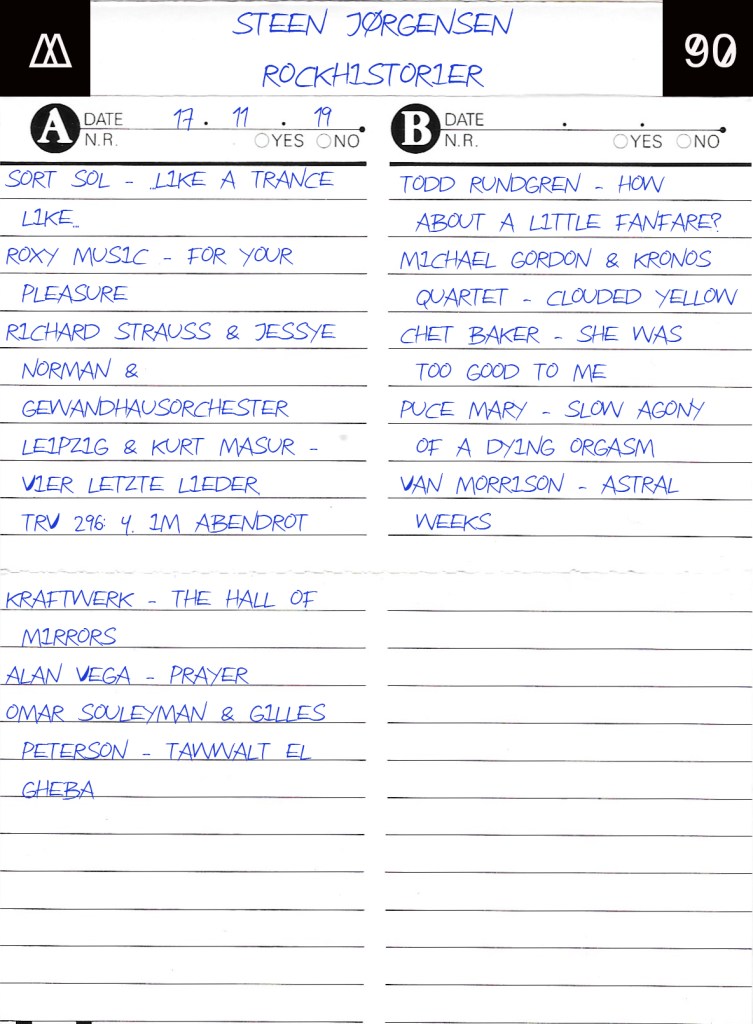 STEEN JØRGENSEN
ROCKHISTORIER
90
A DATE 17 . 11 . 19
N.R. YES NO
SORT SOL - ..LIKE A TRANCE
LIKE...
ROXY MUSIC - FOR YOUR
PLEASURE
RICHARD STRAUSS & JESSYE
NORMAN &
GEWANDHAUSORCHESTER
LEIPZIG & KURT MASUR -
VIER LETZTE LIEDER
TRV 296: 4. IM ABENDROT
KRAFTWERK - THE HALL OF
MIRRORS
ALAN VEGA - PRAYER
OMAR SOULEYMAN & GILLES
PETERSON - TAWWALT EL
GHEBA
B DATE . .
N.R. YES NO
TODD RUNDGREN - HOW
ABOUT A LITTLE FANFARE?
MICHAEL GORDON & KRONOS
QUARTET - CLOUDED YELLOW
CHET BAKER - SHE WAS
TOO GOOD TO ME
PUCE MARY - SLOW AGONY
OF A DYING ORGASM
VAN MORRISON - ASTRAL
WEEKS